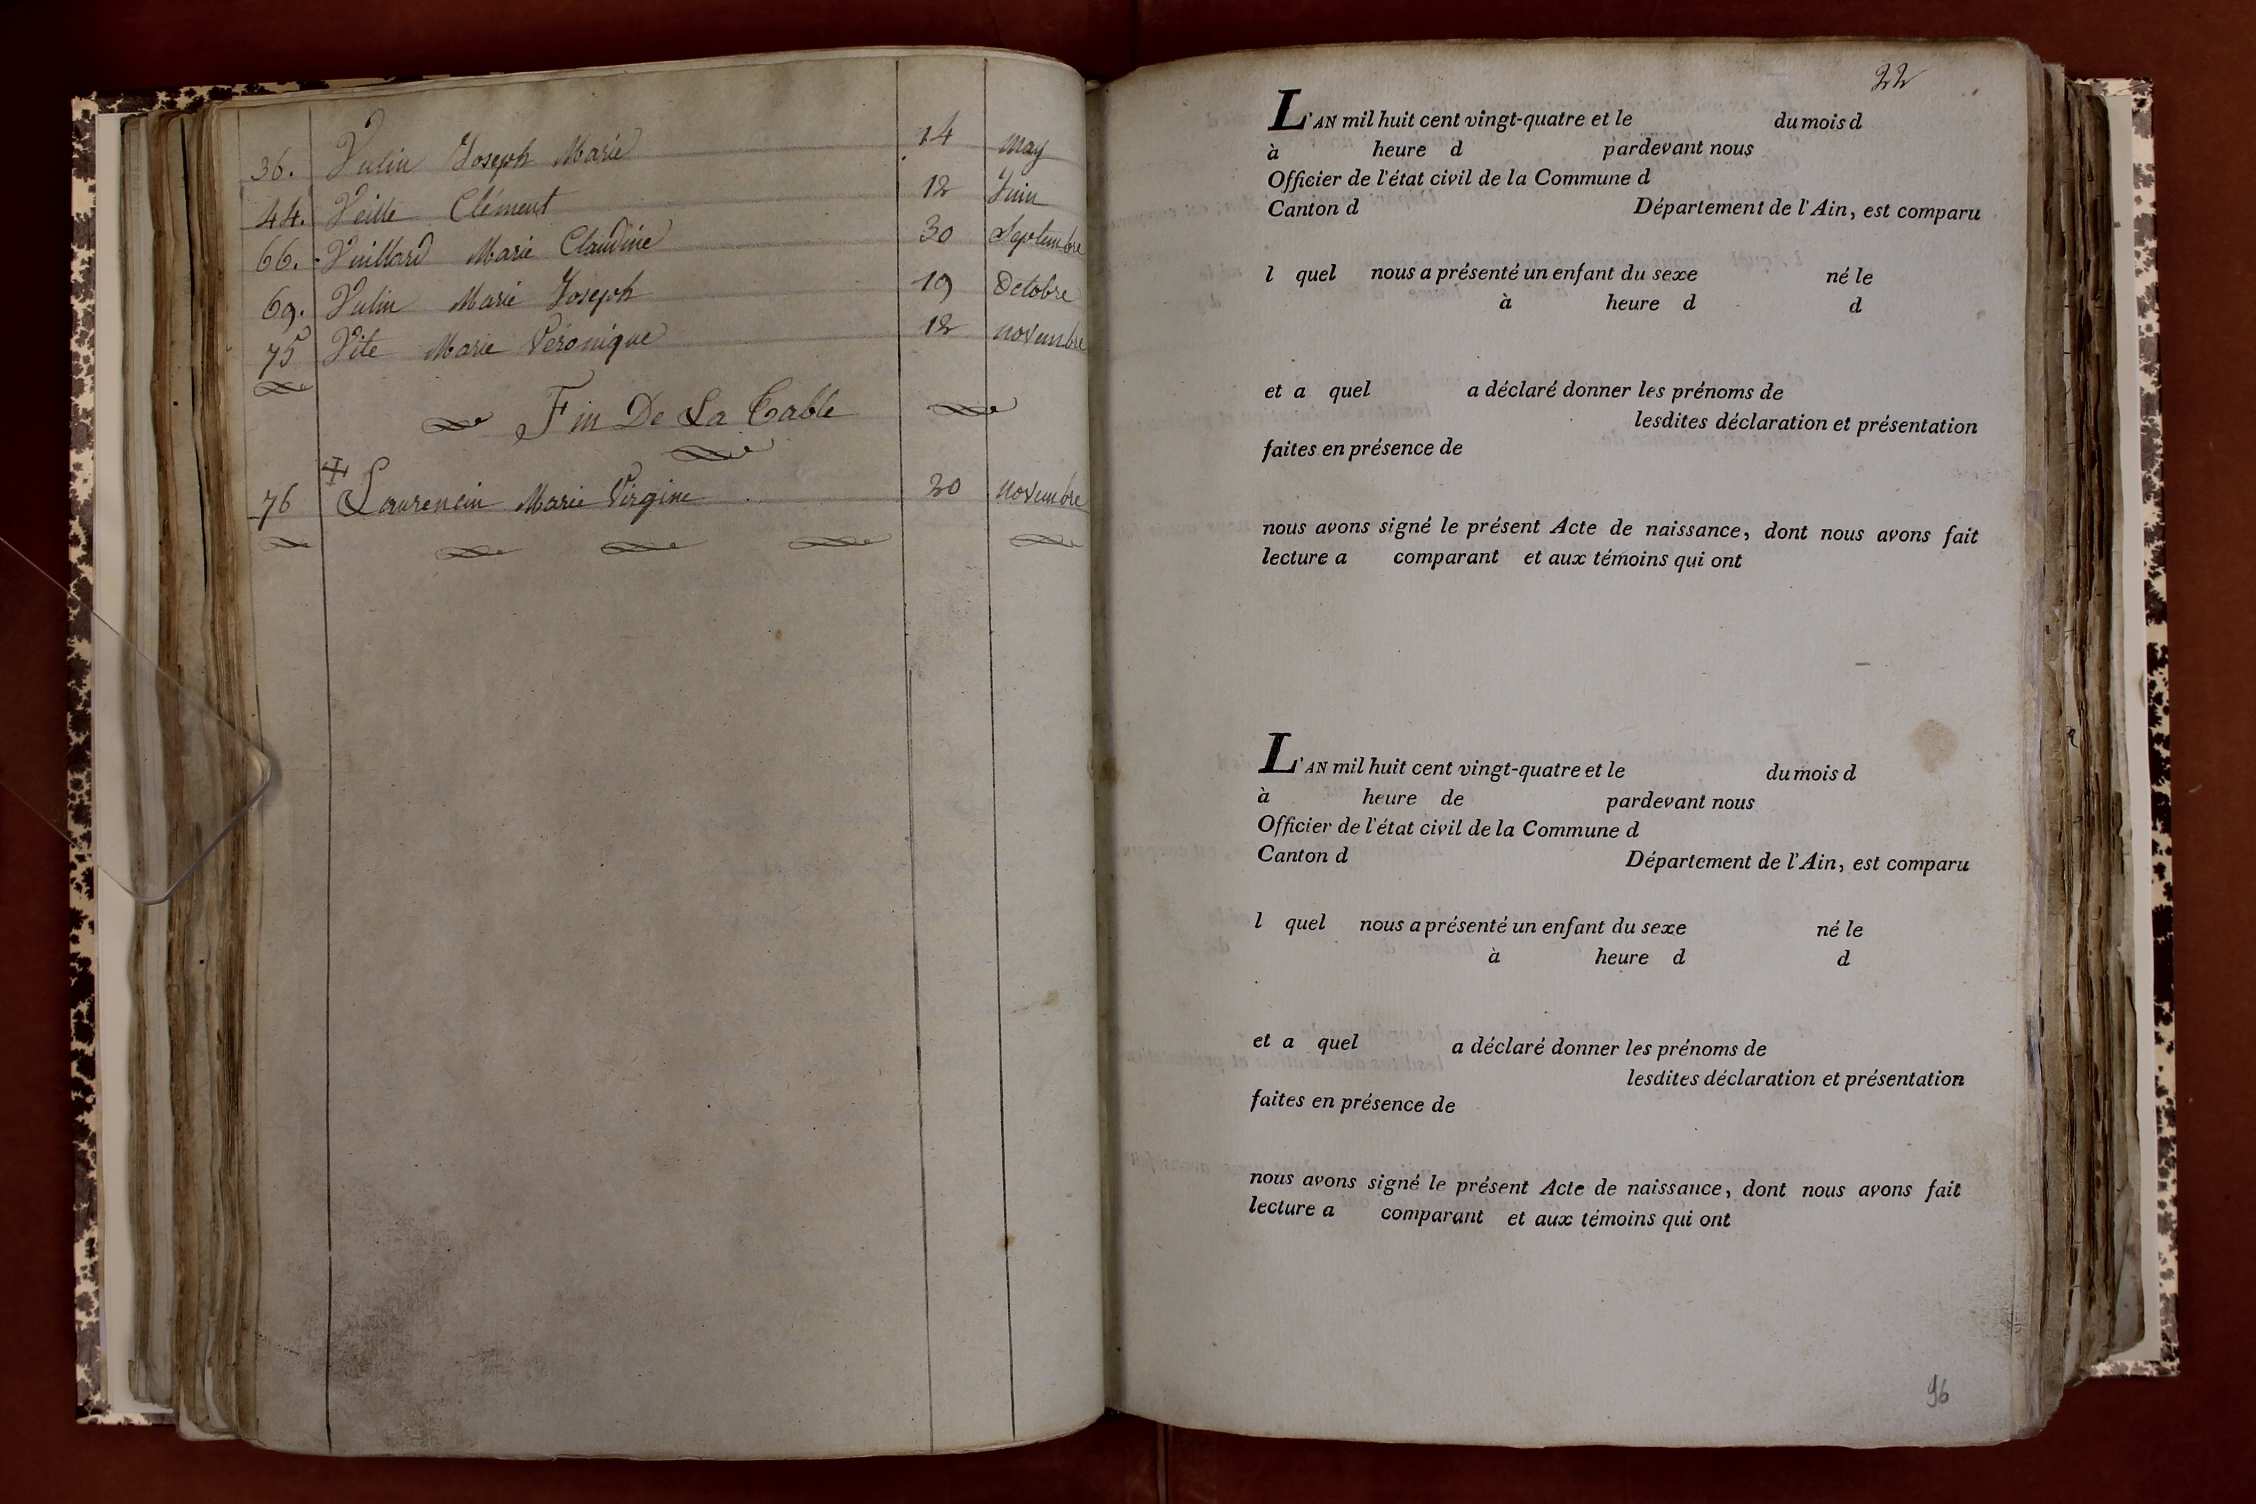 36. Vulin Joseph Marie 14 May
44. Veille Clément 12 Juin
66. Vuillard Marie Claudine 30 Septembre
69. Vulin Marie Joseph 19 Octobre
75 Vite Marie Véronique 12 novembre
Fin De La Table
76 Laurencin Marie Virgine 20 novembre
22
L'AN mil huit cent vingt-quatre et le du mois d
à heure d pardevant nous
Officier de l'état civil de la Commune d
Canton d Département de l'Ain, est comparu
l quel nous a présenté un enfant du sexe né le
à heure d d
et a quel a déclaré donner les prénoms de
lesdites déclaration et présentation
faites en présence de
nous avons signé le présent Acte de naissance, dont nous avons fait
lecture a comparant et aux témoins qui ont
L'AN mil huit cent vingt-quatre et le du mois d
à heure de pardevant nous
Officier de l'état civil de la Commune d
Canton d Département de l'Ain, est comparu
l quel nous a présenté un enfant du sexe né le
à heure d d
et a quel a déclaré donner les prénoms de
lesdites déclaration et présentation
faites en présence de
nous avons signé le présent Acte de naissance, dont nous avons fait
lecture a comparant et aux témoins qui ont
96